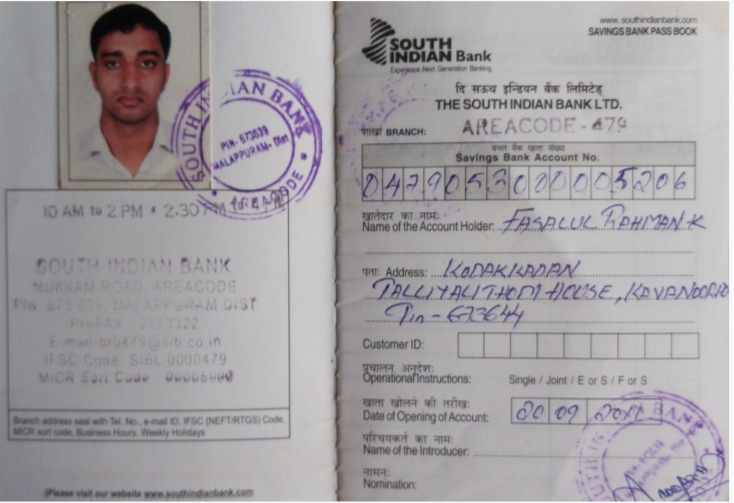 SOUTH INDIAN BANK
PIN-673639
MALAPPURAM-Dist
AREACODE
10 AM to 2 PM • 2.30 PM to 4 PM
SOUTH INDIAN BANK
MUKKAM ROAD, AREACODE
PIN 673 639, MALAPPURAM DIST
PH/FAX 2853322
E-mail-br0479@sib.co.in
IFSC Code SIBL 0000479
MICR Sort Code
Branch address seal with Tel. No., e-mail ID, IFSC (NEFT/RTGS) Code,
MICR sort code, Business Hours, Weekly Holidays
(Please visit our website www.southindianbank.com
www.southindianbank.com
SAVINGS BANK PASS BOOK
SOUTH
INDIAN Bank
Experience Next Generation Banking
दि सऊथ इन्डियन बैंक लिमिटेड्
THE SOUTH INDIAN BANK LTD.
शाखा BRANCH: AREACODE - 479
बचत बैंक खाता संख्या
Savings Bank Account No.
0479053000005206
खातेदार का नाम:
Name of the Account Holder: FASALUL RAHMAN·K
पता: Address: KODAKKADAN
PALLIYALITHODI HOUSE, KAVANOOR PO
Pin-673644
Customer ID:
प्रचालन अनुदेश:
Operational Instructions: Single / Joint / E or S / F or S
खाता खोलने की तारीख:
Date of Opening of Account: 20 09 2011
परिचयकर्ता का नाम:
Name of the Introducer:
नामन:
Nomination: